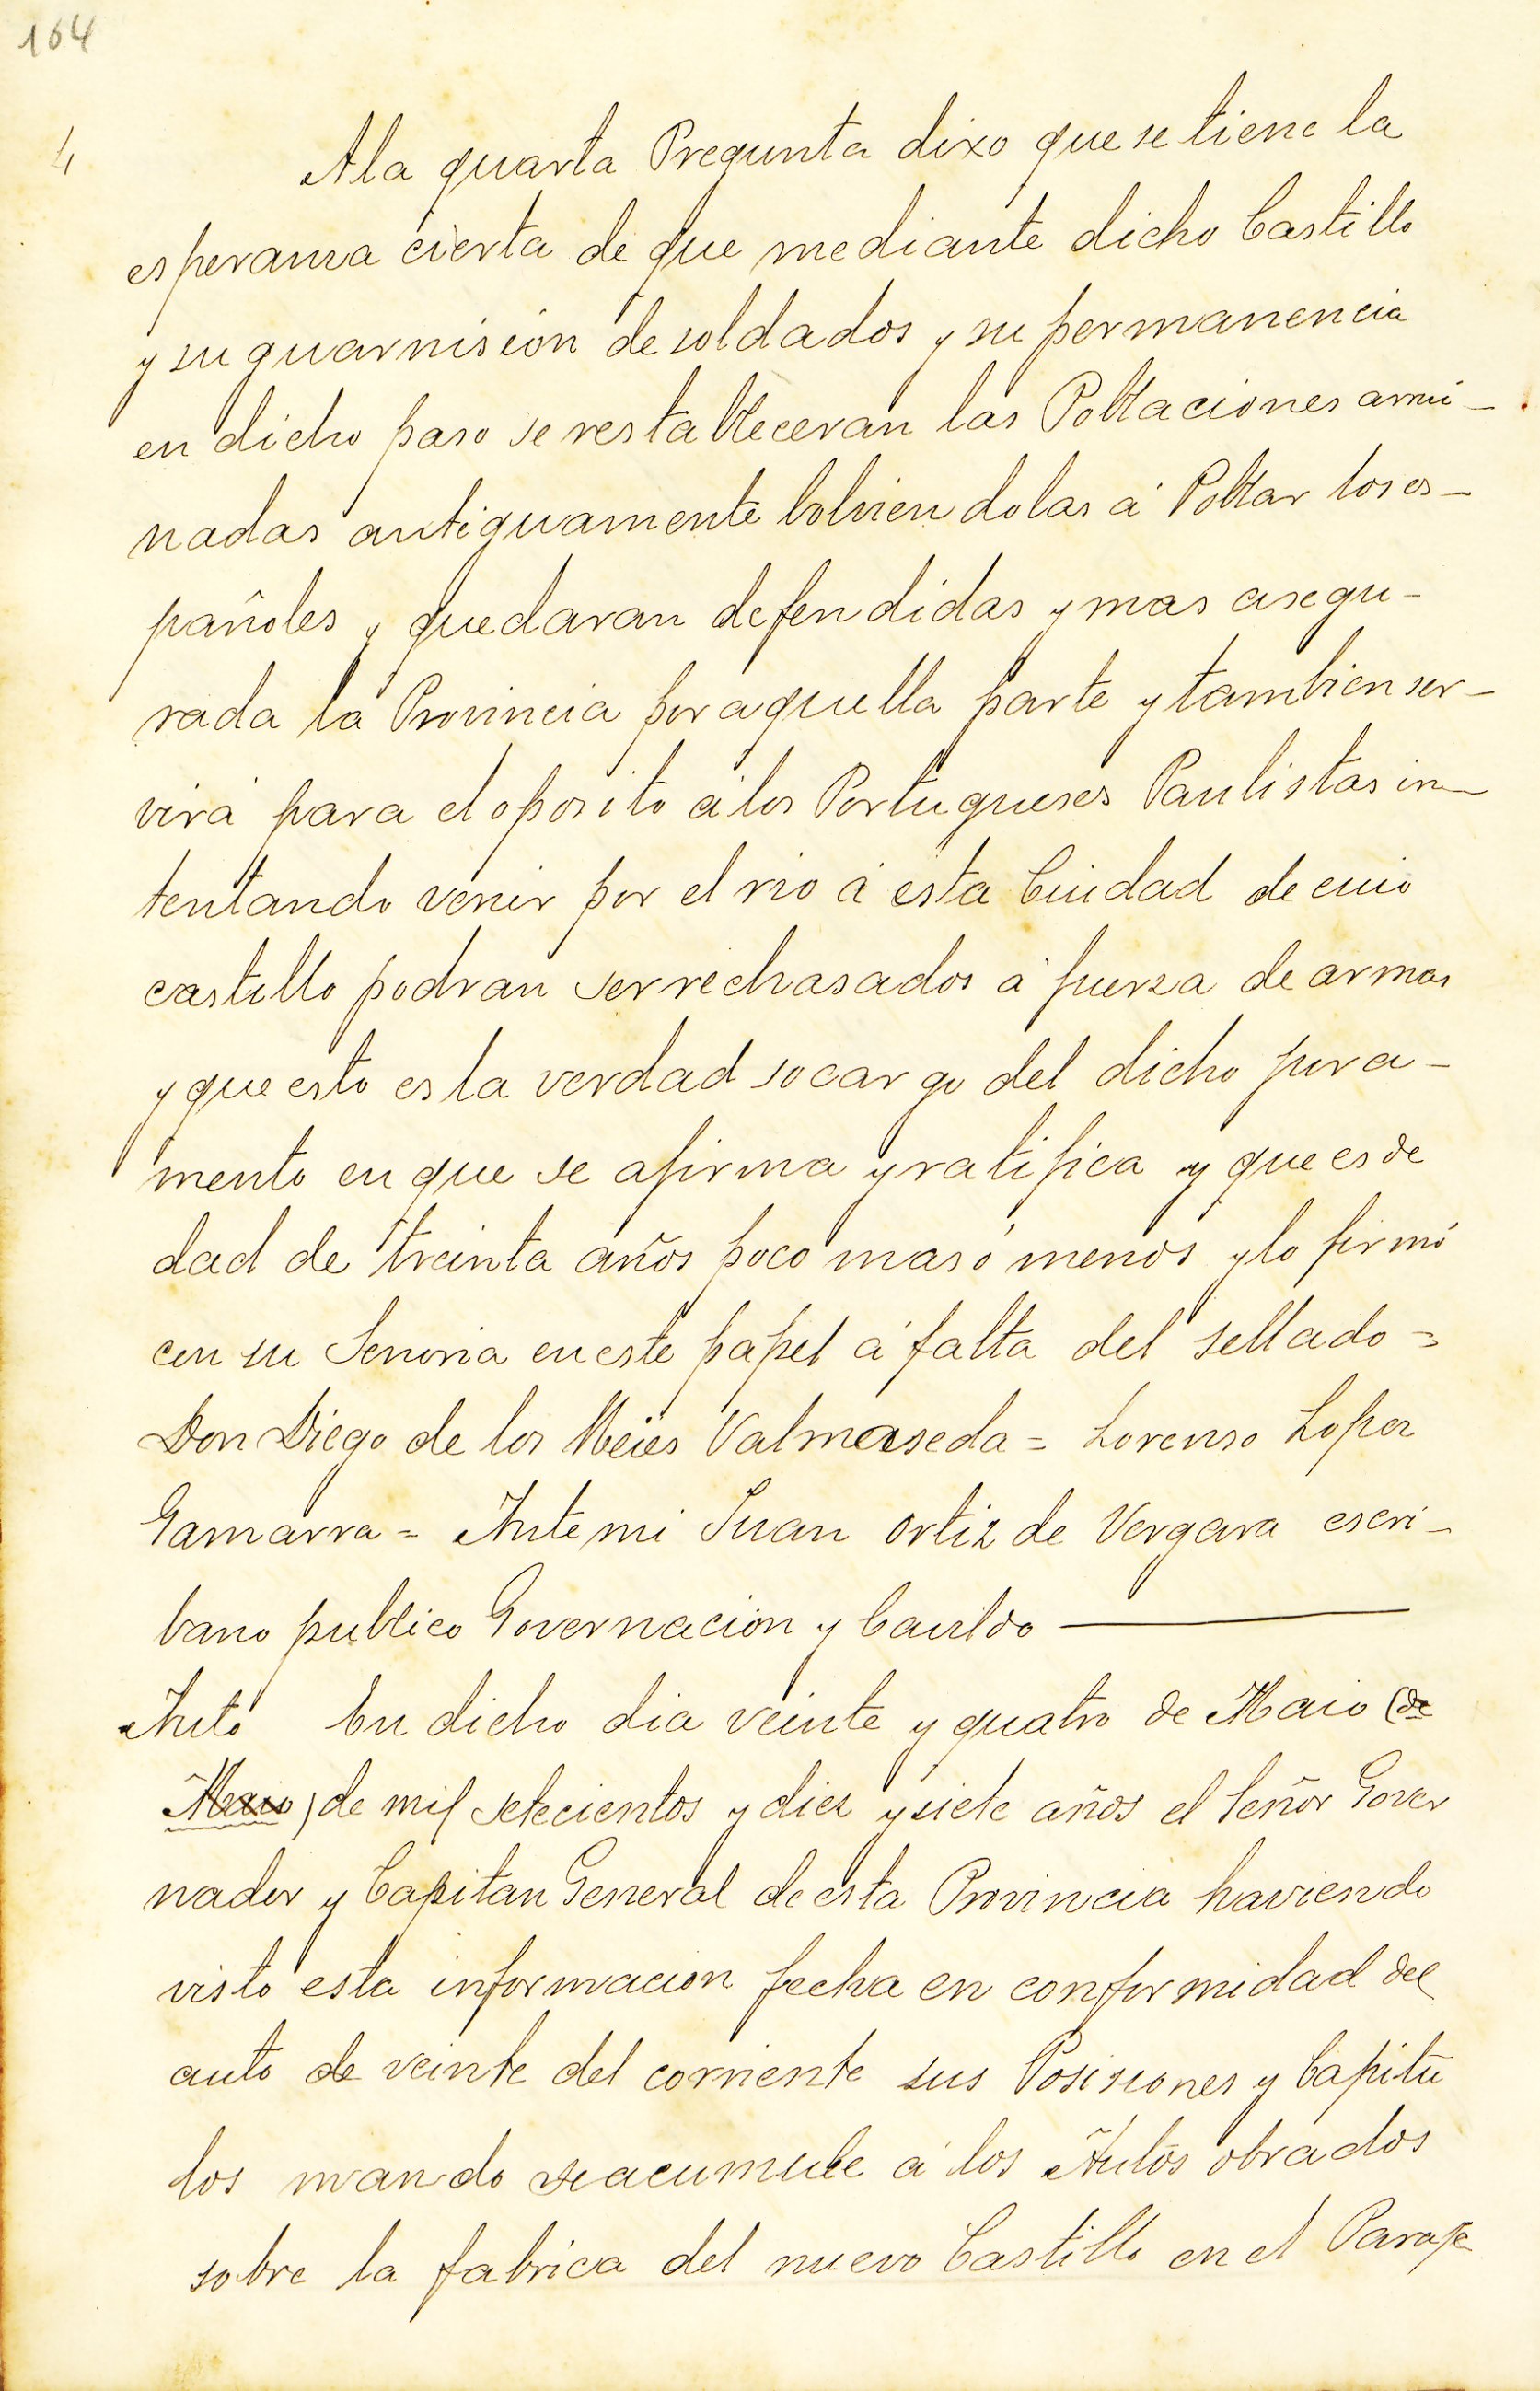 164
4
A la quarta Pregunta dixo que se tiene la
esperanza cierta de que mediante dicho Castillo
y su guarnision de soldados y su permanencia
en dicho paso se restableceran las Poblaciones arrui-
nadas antiguamente bolviendolas á Poblar los es-
pañoles y quedaran defendidas y mas asegu-
rada la Provincia por aquella parte y tambien ser-
virá para el oposito á los Portugueses Paulistas in-
tentando venir por el rio á esta Ciudad de cuio
castillo podran ser rechasados á fuerza de armas
y que esto es la verdad so cargo del dicho jura-
mento en que se afirma y ratifica y que es de
dad de treinta años poco mas ó menos y lo firmó
con su Senoria en este papel á falta del sellado =
Don Diego de los Reies Valmaseda = Lorenso Lopez
Gamarra = Ante mi Juan Ortiz de Vergara escri-
bano publico Governacion y Cavildo
Auto En dicho dia veinte y quatro de Maio (de
Maio) de mil setecientos y diez y siete años el Señor Gover
nador y Capitan General de esta Provincia haviendo
visto esta informacion fecha en conformidad del
auto de veinte del corriente sus Posisiones y Capitu
los mando se acumule á los Autos obrados
sobre la fabrica del nuevo Castillo en el Paraje